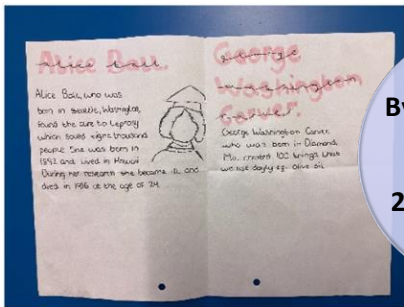 Alice Ball.
Alice Ball, who was
born in Seattle, Washington,
found the cure to Leprosy
which saved eight thousand
people. She was born in
1892 and lived in Hawaii
During her research she became ill, and
died in 1916 at the age of 24.
George
Washington
Carver.
George Washington Carver,
who was born in Diamond,
Mo, created 100 things what
we use dayly eg. Olive oil.
B
2